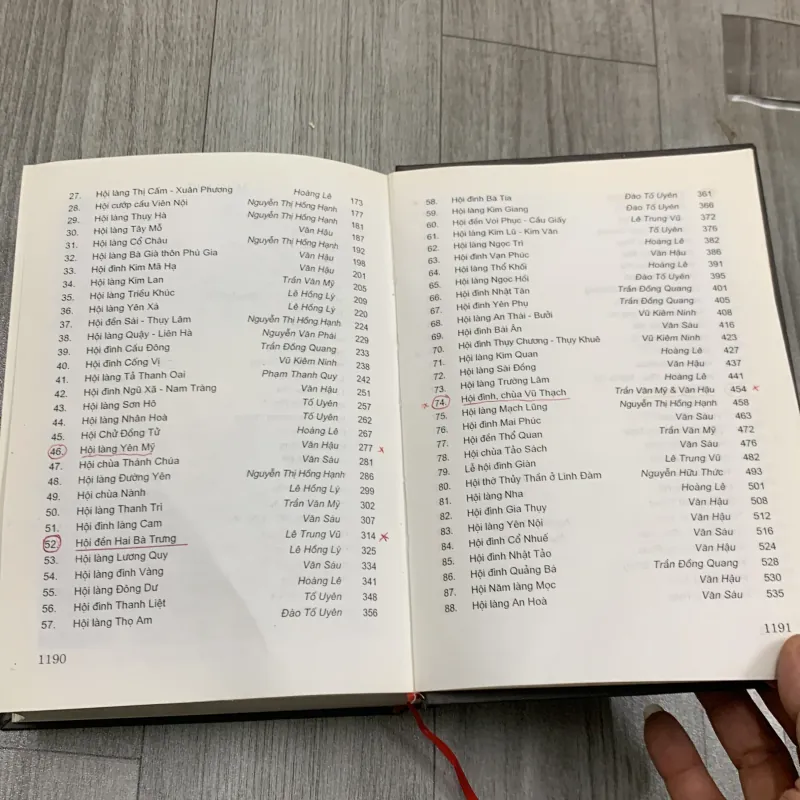 27. Hội làng Thị Cấm - Xuân Phương Hoàng Lê 173
28. Hội cướp cầu Viên Nội Nguyễn Thị Hồng Hạnh 177
29. Hội làng Thụy Hà Nguyễn Thị Hồng Hạnh 181
30. Hội làng Tây Mỗ Văn Hậu 187
31. Hội làng Cổ Châu Nguyễn Thị Hồng Hạnh 192
32. Hội làng Bà Già thôn Phú Gia Văn Hậu 198
33. Hội đình Kim Mã Hạ Văn Hậu 201
34. Hội làng Kim Lan Trần Văn Mỹ 205
35. Hội làng Triều Khúc Lê Hồng Lý 209
36. Hội làng Yên Xá Lê Hồng Lý 220
37. Hội đền Sái - Thụy Lâm Nguyễn Thị Hồng Hạnh 224
38. Hội làng Quậy - Liên Hà Nguyễn Văn Phái 229
39. Hội đình Cầu Đông Trần Đồng Quang 233
40. Hội đình Cống Vị Vũ Kiêm Ninh 238
41. Hội làng Tả Thanh Oai Phạm Thanh Quy 242
42. Hội đình Ngũ Xã - Nam Tràng Văn Hậu 251
43. Hội làng Sơn Hô Tố Uyên 257
44. Hội làng Nhân Hoà Tố Uyên 262
45. Hội Chử Đồng Tử Hoàng Lê 267
46. Hội làng Yên Mỹ Văn Hậu 277
47. Hội chùa Thánh Chúa Văn Sáu 281
48. Hội làng Đường Yên Nguyễn Thị Hồng Hạnh 286
49. Hội chùa Nành Lê Hồng Lý 299
50. Hội làng Thanh Trì Trần Văn Mỹ 302
51. Hội đình làng Cam Văn Sáu 307
52. Hội đền Hai Bà Trưng Lê Trung Vũ 314
53. Hội làng Lương Quy Lê Hồng Lý 325
54. Hội làng đình Vàng Văn Sáu 334
55. Hội làng Đông Dư Hoàng Lê 341
56. Hội đình Thanh Liệt Tố Uyên 348
57. Hội làng Thọ Am Đào Tố Uyên 356
1190
58. Hội đình Bà Tia Đào Tố Uyên 361
59. Hội làng Kim Giang Đào Tố Uyên 366
60. Hội đền Voi Phục - Cầu Giấy Lê Trung Vũ 372
61. Hội làng Kim Lũ - Kim Văn Tố Uyên 376
62. Hội làng Ngọc Trì Hoàng Lê 382
63. Hội đình Vạn Phúc Văn Hậu 386
64. Hội làng Thổ Khối Hoàng Lê 391
65. Hội làng Ngọc Hồi Đào Tố Uyên 395
66. Hội đình Nhật Tân Trần Đồng Quang 401
67. Hội đình Yên Phụ Trần Đồng Quang 405
68. Hội làng An Thái - Bưởi Vũ Kiêm Ninh 408
69. Hội đình Bài Ân Văn Sáu 416
70. Hội đình Thụy Chương - Thụy Khuê Vũ Kiêm Ninh 423
71. Hội làng Kim Quan Hoàng Lê 427
72. Hội làng Sài Đồng Văn Hậu 437
73. Hội làng Trường Lâm Hoàng Lê 441
74. Hội đình, chùa Vũ Thạch Trần Văn Mỹ & Văn Hậu 454
75. Hội làng Mạch Lũng Nguyễn Thị Hồng Hạnh 458
76. Hội đình Mai Phúc Văn Sáu 463
77. Hội đền Thổ Quan Trần Văn Mỹ 472
78. Hội chùa Tảo Sách Văn Sáu 476
79. Lễ hội đình Giàn Lê Trung Vũ 482
80. Hội thờ Thủy Thần ở Linh Đàm Nguyễn Hữu Thức 493
81. Hội làng Nha Hoàng Lê 501
82. Hội đình Gia Thụy Văn Hậu 508
83. Hội làng Yên Nội Văn Hậu 512
84. Hội đình Cổ Nhuế Văn Sáu 516
85. Hội đình Nhật Tảo Văn Hậu 524
86. Hội đình Quảng Bá Trần Đồng Quang 528
87. Hội Năm làng Mọc Văn Hậu 530
88. Hội làng An Hoà Văn Sáu 535
1191